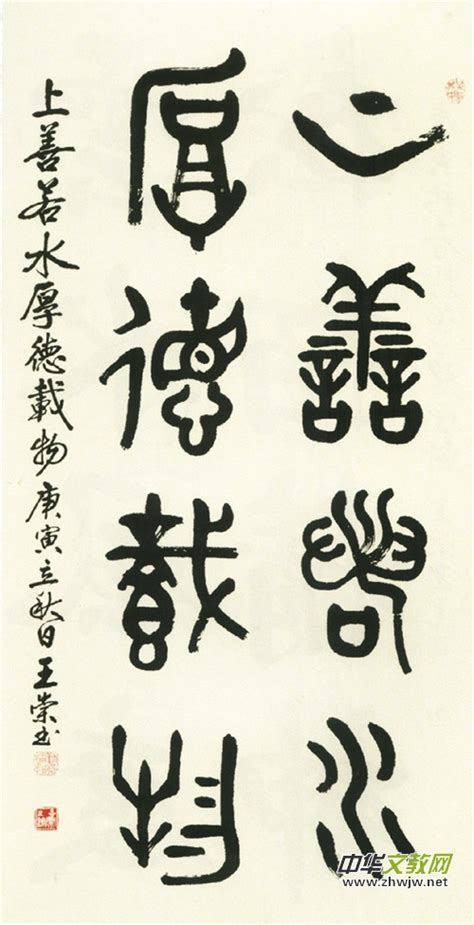 上善若水
厚德载物
上善若水厚德載物庚寅立秋日王荣书
中华文教网
www.zhwjw.net